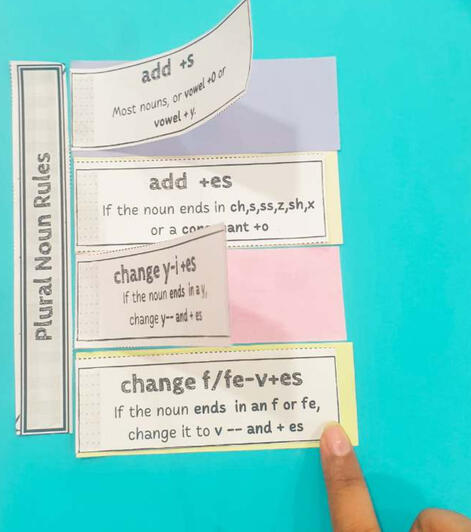 Plural Noun Rules
add +s
Most nouns, or vowel +o or
vowel + y.
add +es
If the noun ends in ch,s,ss,z,sh,x
or a +o
change y-i +es
If the noun ends in a y,
change y-- and + es
change f/fe-v+es
If the noun ends in an f or fe,
change it to v -- and + es